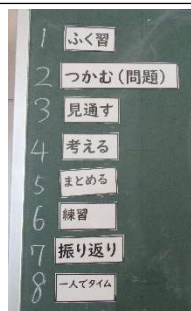 1 ふく習
2 つかむ(問題)
3 見通す
4 考える
5 まとめる
6 練習
7 振り返り
8 一人でタイム